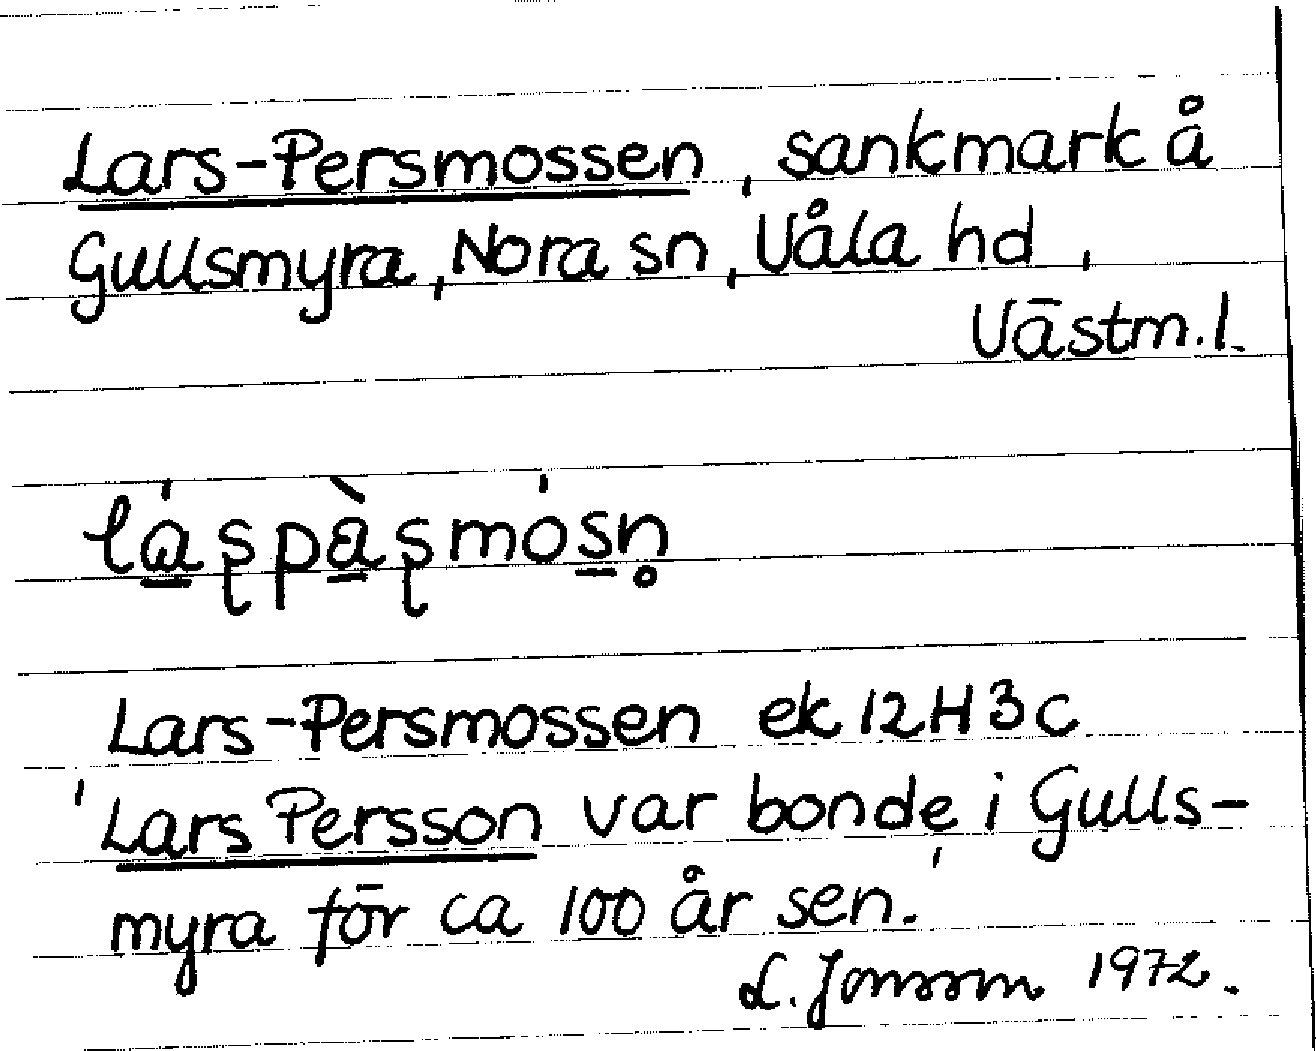 Lars-Persmossen, sankmark å
Gullsmyra, Nora sn, Våla hd,
Västm.l.
lá̱ʂpà̱ʂmós̱n̥
Lars-Persmossen ek 12H3c
'Lars Persson var bonde i Gulls-
myra för ca 100 år sen.'
L. Jonsson 1972.